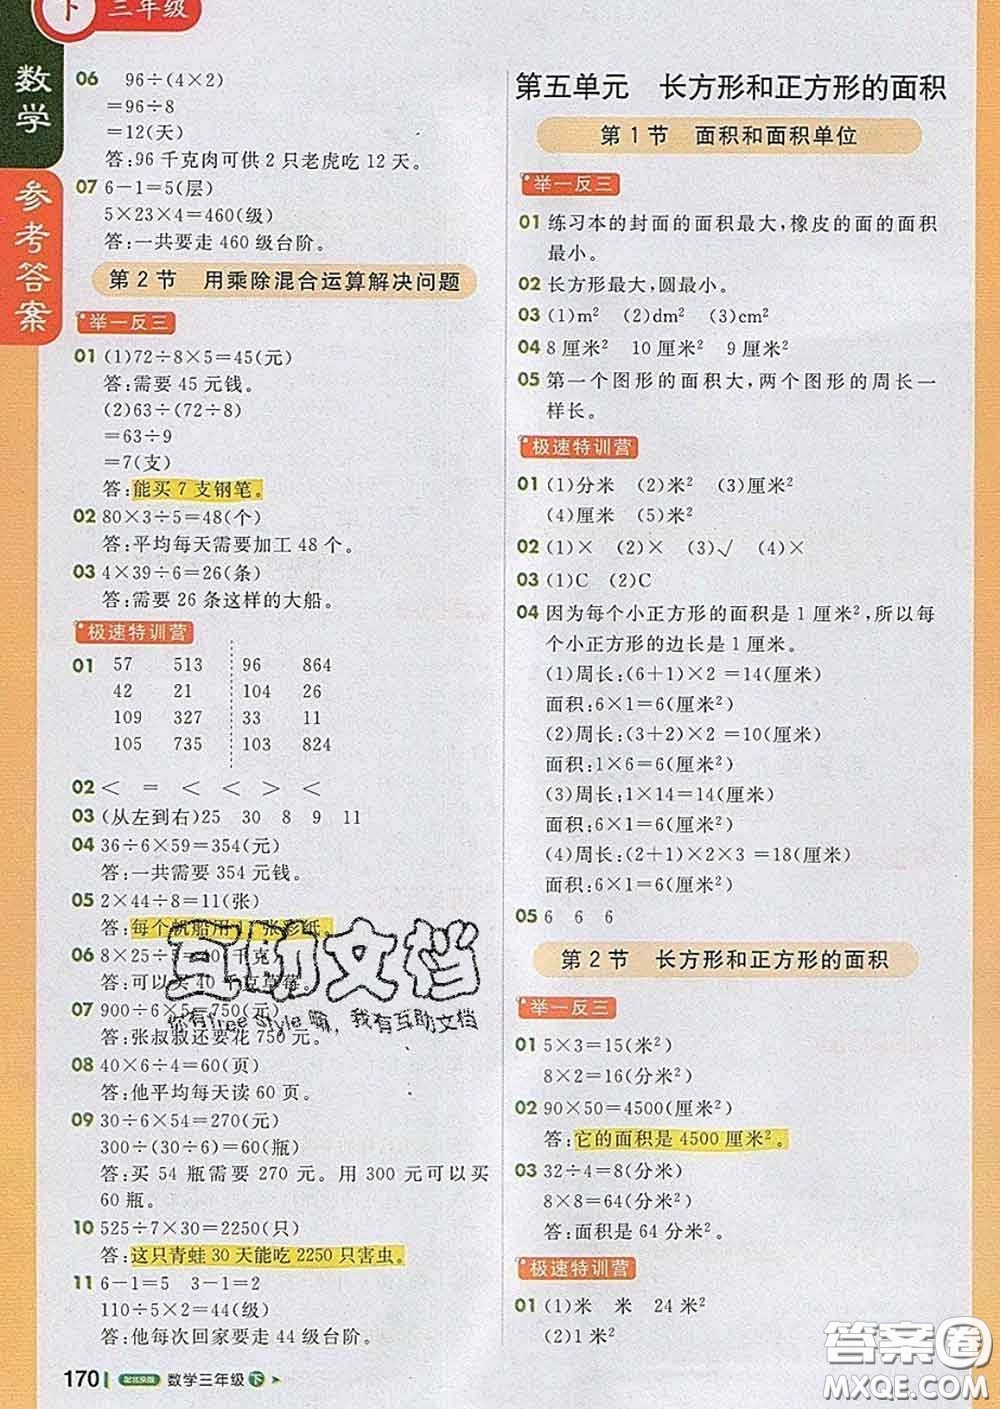 下 三年级
数学
参考答案
06 96÷(4×2)
=96÷8
=12(天)
答:96 千克肉可供 2 只老虎吃 12 天。
07 6-1=5(层)
5×23×4=460(级)
答:一共要走 460 级台阶。
第 2 节 用乘除混合运算解决问题
举一反三
01 (1)72÷8×5=45(元)
答:需要 45 元钱。
(2)63÷(72÷8)
=63÷9
=7(支)
答:能买 7 支钢笔。
02 80×3÷5=48(个)
答:平均每天需要加工 48 个。
03 4×39÷6=26(条)
答:需要 26 条这样的大船。
极速特训营
01 57 513 96 864
42 21 104 26
109 327 33 11
105 735 103 824
02 < = < < > <
03 (从左到右)25 30 8 9 11
04 36÷6×59=354(元)
答:一共需要 354 元钱。
05 2×44÷8=11(张)
答:每个帆船用 11 张彩纸。
06 8×25÷ = 0(千克)
答:可以买 40 千克草莓。
07 900÷6×5=750(元)
答:张叔叔还要花 750 元。
08 40×6÷4=60(页)
答:他平均每天读 60 页。
09 30÷6×54=270(元)
300÷(30÷6)=60(瓶)
答:买 54 瓶需要 270 元。用 300 元可以买
60 瓶。
10 525÷7×30=2250(只)
答:这只青蛙 30 天能吃 2250 只害虫。
11 6-1=5 3-1=2
110÷5×2=44(级)
答:他每次回家要走 44 级台阶。
170 配北京版 数学三年级 下
第五单元 长方形和正方形的面积
第 1 节 面积和面积单位
举一反三
01 练习本的封面的面积最大,橡皮的面的面积
最小。
02 长方形最大,圆最小。
03 (1)m² (2)dm² (3)cm²
04 8 厘米² 10 厘米² 9 厘米²
05 第一个图形的面积大,两个图形的周长一
样长。
极速特训营
01 (1)分米 (2)米² (3)厘米²
(4)厘米 (5)米²
02 (1)× (2)× (3)√ (4)×
03 (1)C (2)C
04 因为每个小正方形的面积是 1 厘米²,所以每
个小正方形的边长是 1 厘米。
(1)周长:(6+1)×2=14(厘米)
面积:6×1=6(厘米²)
(2)周长:(3+2)×2=10(厘米)
面积:1×6=6(厘米²)
(3)周长:1×14=14(厘米)
面积:6×1=6(厘米²)
(4)周长:(2+1)×2×3=18(厘米)
面积:6×1=6(厘米²)
05 6 6 6
第 2 节 长方形和正方形的面积
举一反三
01 5×3=15(米²)
8×2=16(分米²)
02 90×50=4500(厘米²)
答:它的面积是 4500 厘米²。
03 32÷4=8(分米)
8×8=64(分米²)
答:面积是 64 分米²。
极速特训营
01 (1)米 米 24 米²
(2)1 米²
互助文档
你有free style嘛,我有互助文档
答案圈
MXQE.COM